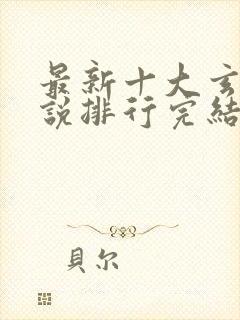 最新十大玄
說排行完結
貝尔